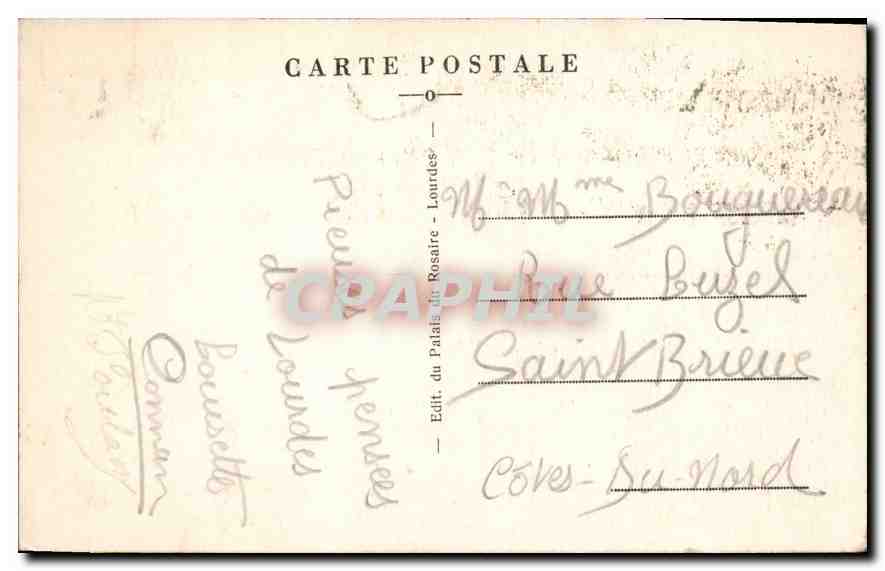 CARTE POSTALE
Edit. du Palais du Rosaire - Lourdes
Pieuses pensées
de Lourdes
Louisette
Mr Mme Bouquereau
Rue Luzel
Saint Brieuc
Côtes-Du-Nord
CPAPHIL